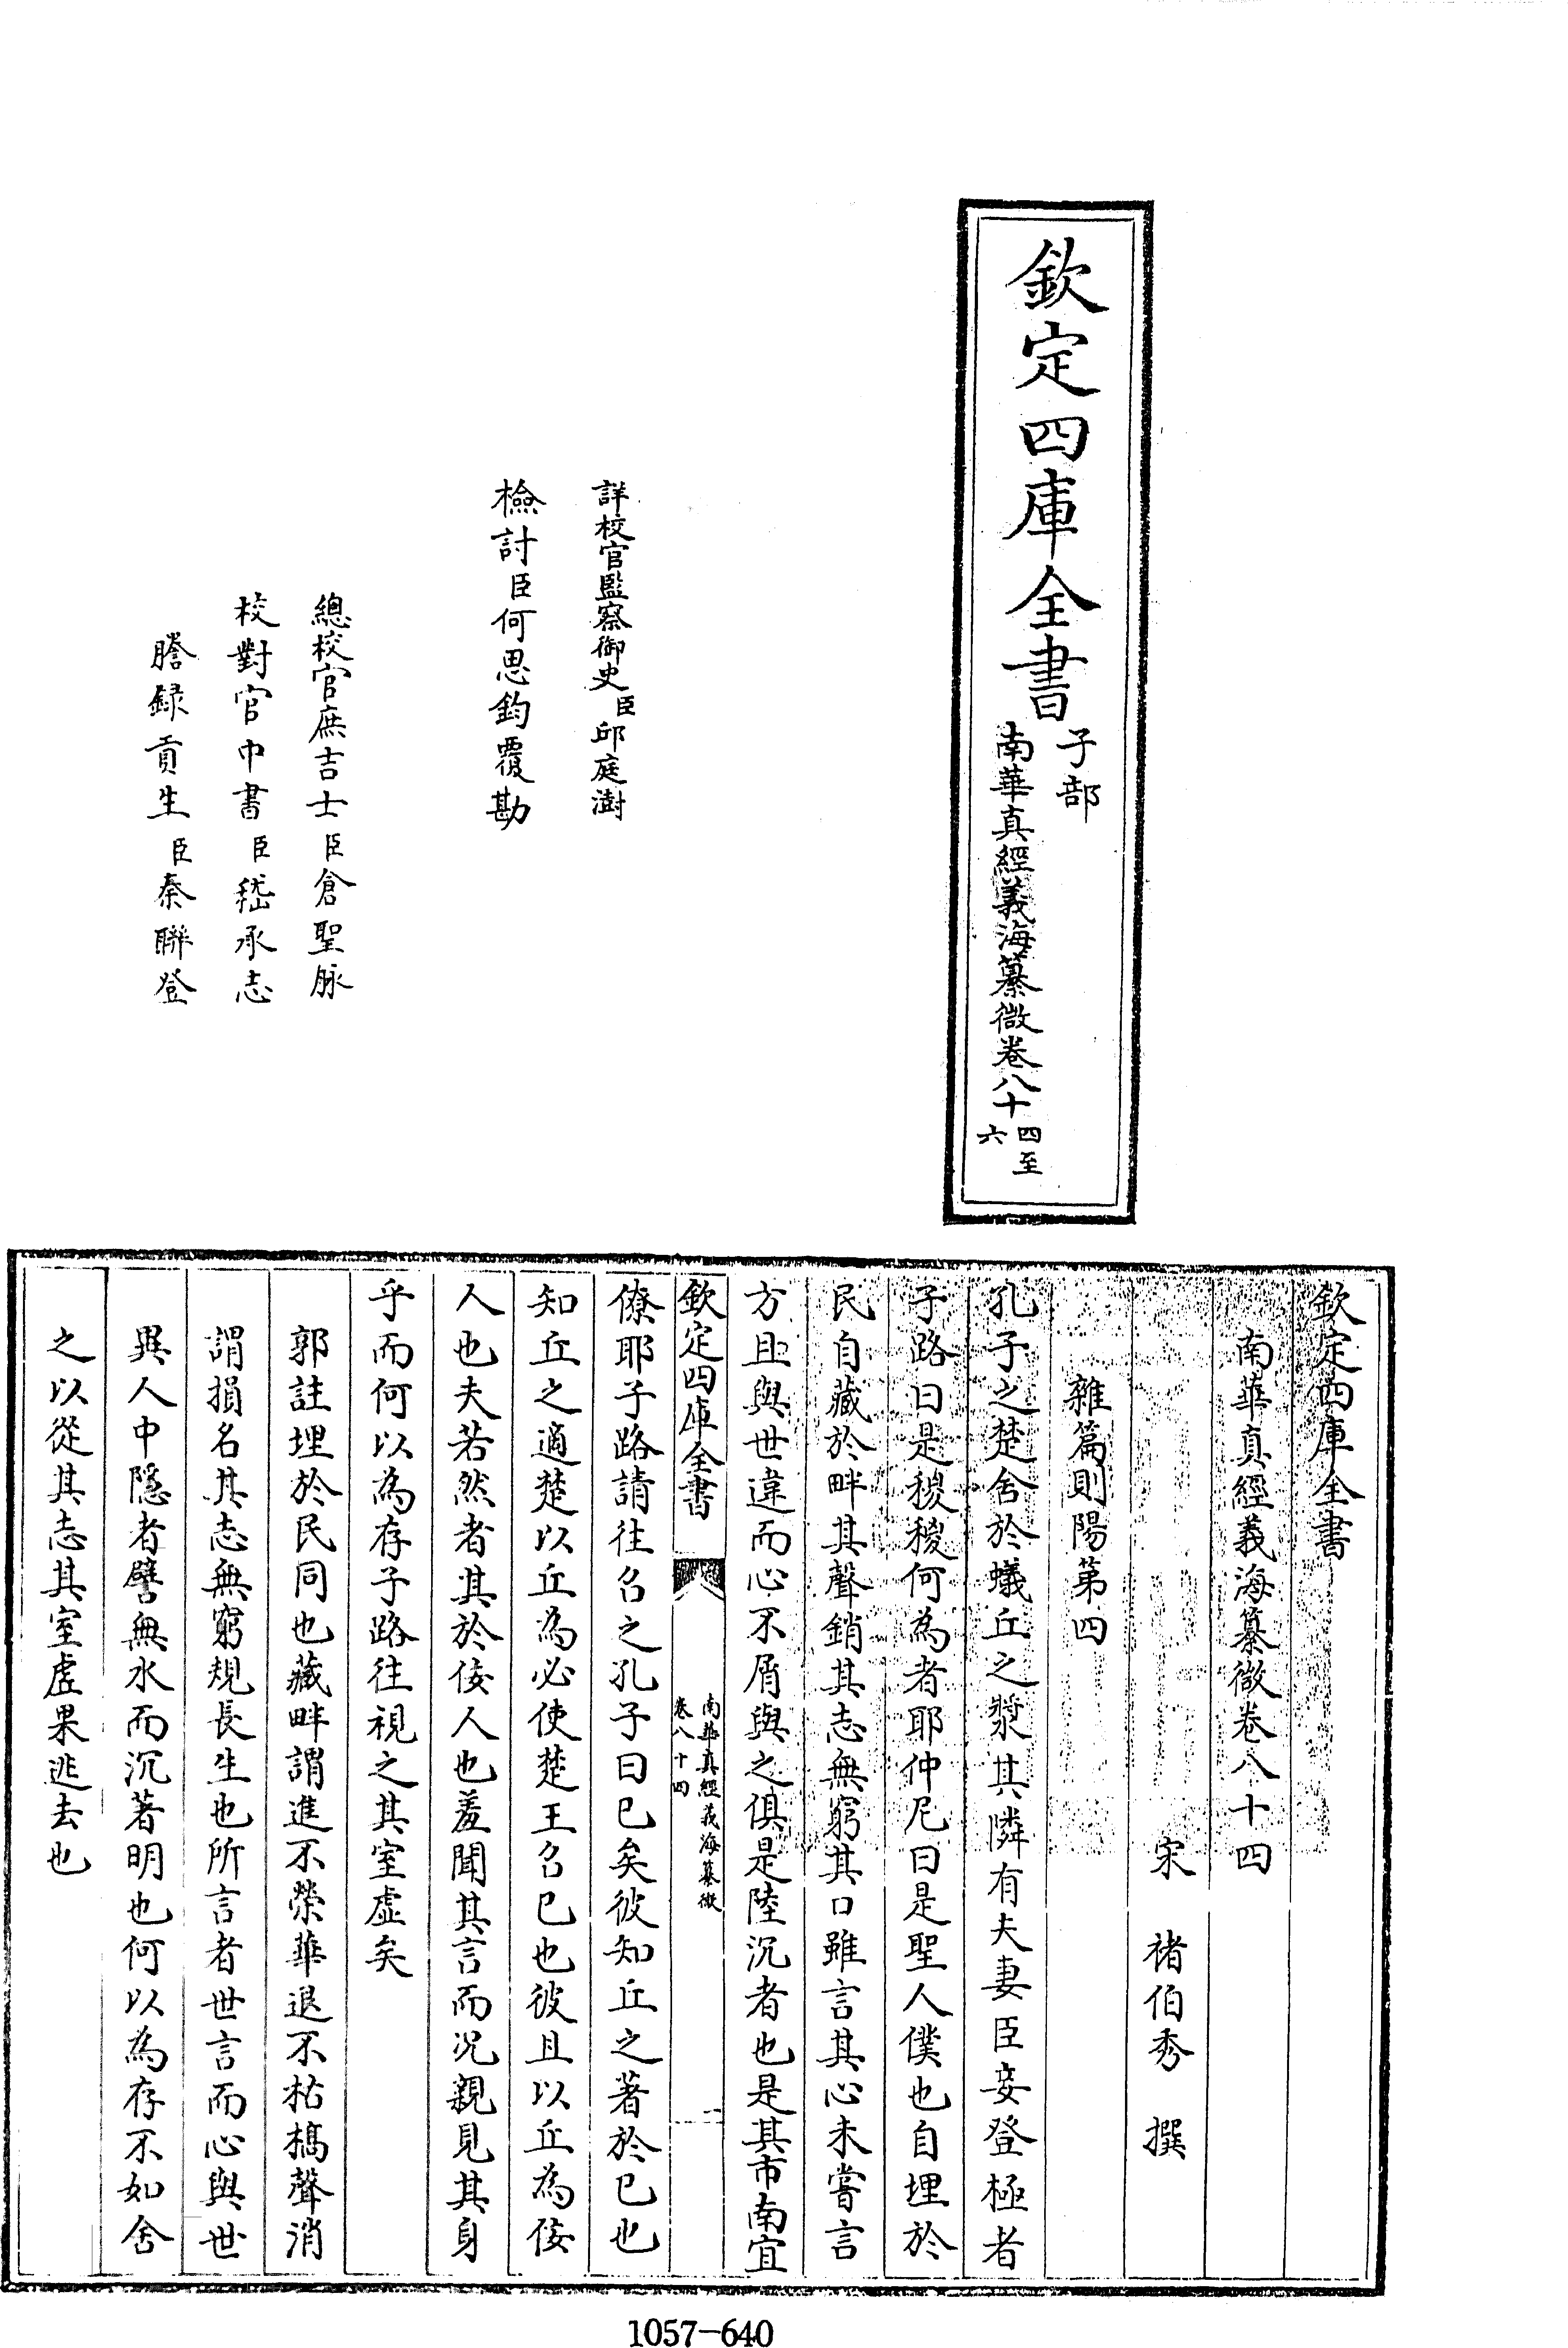 欽定四庫全書
子部
南華真經義海纂微卷八十四至六
詳校官監察御史臣邱庭澍
檢討臣何思鈞覆勘
總校官庶吉士臣倉聖脉
校對官中書臣嵇承志
謄録貢生臣秦聯登
欽定四庫全書
南華真經義海纂微卷八十四
宋 褚伯秀 撰
雜篇則陽第四
孔子之楚舍於蟻丘之漿其隣有夫妻臣妾登極者
子路曰是稷稷何為者耶仲尼曰是聖人僕也自埋於
民自藏於畔其聲銷其志無窮其口雖言其心未嘗言
方且與世違而心不屑與之俱是陸沉者也是其市南宜
欽定四庫全書
南華真經義海纂微
卷八十四
一
僚耶子路請往召之孔子曰已矣彼知丘之著於已也
知丘之適楚以丘為必使楚王召已也彼且以丘為佞
人也夫若然者其於佞人也羞聞其言而况親見其身
乎而何以為存子路往視之其室虛矣
郭註埋於民同也藏畔謂進不榮華退不枯槁聲消
謂損名其志無窮規長生也所言者世言而心與世
異人中隱者譬無水而沉著明也何以為存不如舍
之以從其志其室虛果逃去也
1057-640